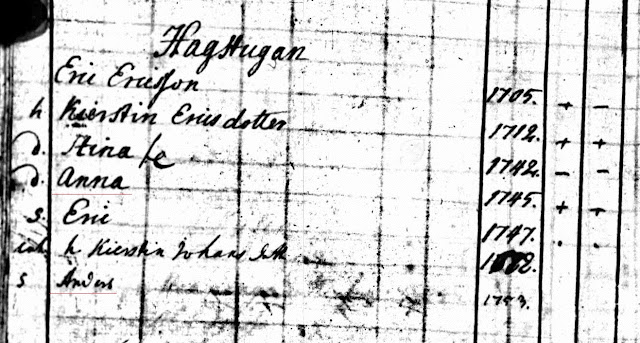 Hagstugan
Eric Ericsson 1705. + -
h Kierstin Ericsdotter 1712. + +
d. Stina 1742. - -
d. Anna 1745. + +
s. Eric 1747. . .
h Kierstin Johans dott
s Anders 1773.